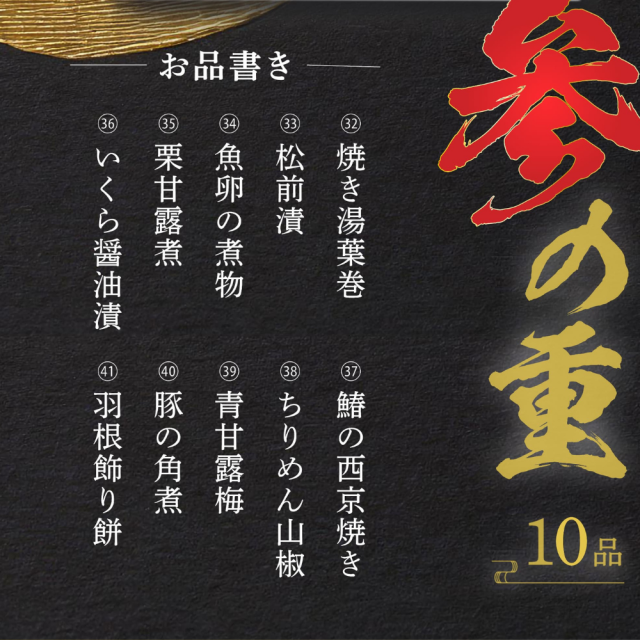 参の重
10品
お品書き
㉜焼き湯葉巻
㉝松前漬
㉞魚卵の煮物
㉟栗甘露煮
㊱いくら醤油漬
㊲鰆の西京焼き
㊳ちりめん山椒
㊴青甘露梅
㊵豚の角煮
㊶羽根飾り餅